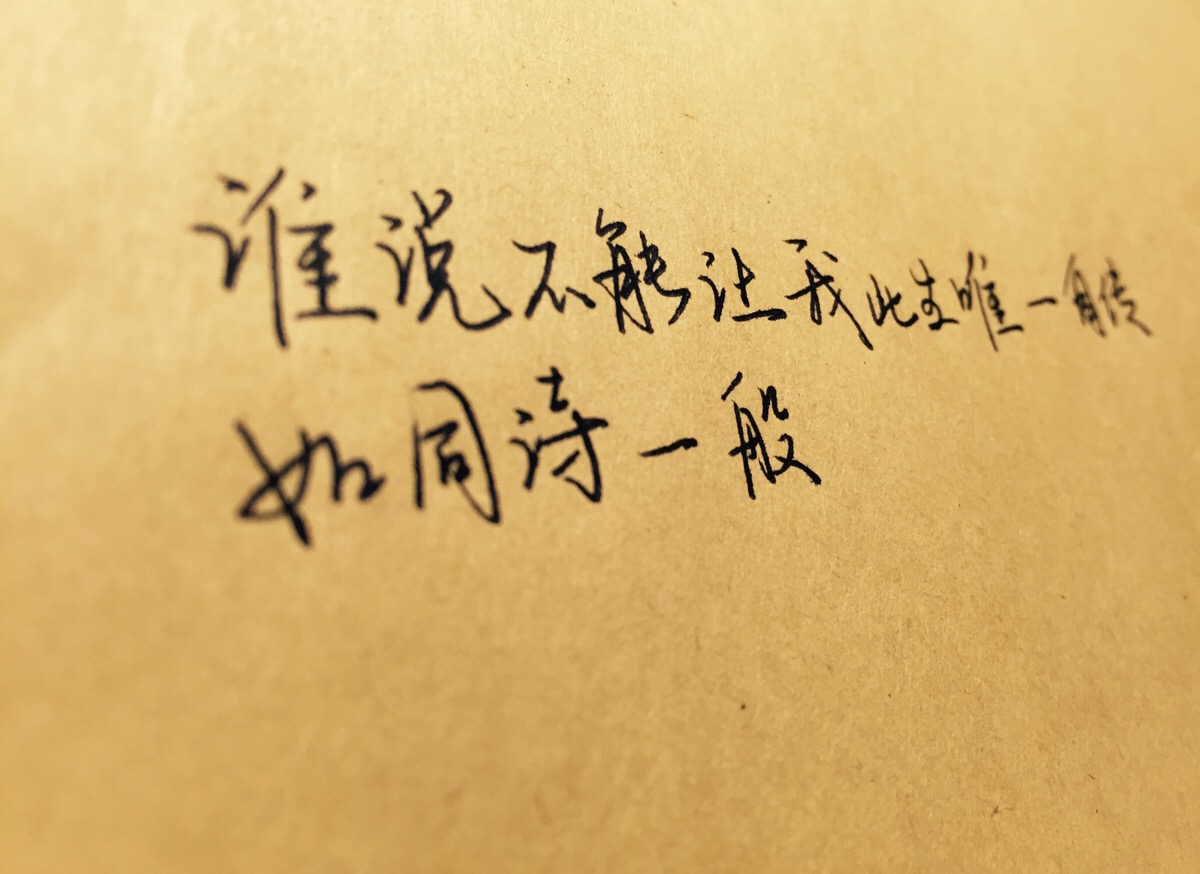 谁说不能让我此生唯一自传
如同诗一般